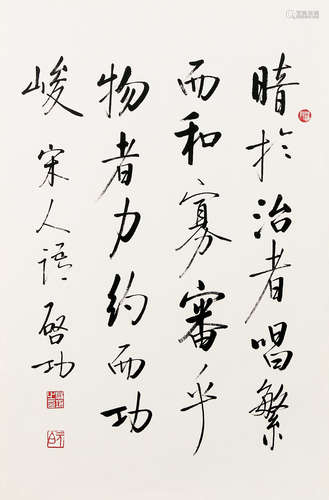 暗於治者唱繁
而和寡審乎
物者力約而功
峻 宋人語 啓功